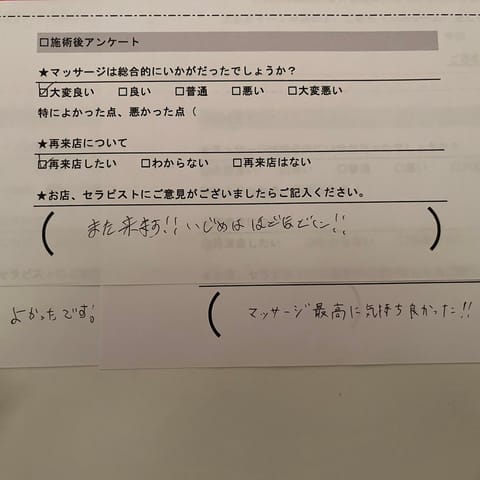 □施術後アンケート
★マッサージは総合的にいかがだったでしょうか？
☑大変良い □良い □普通 □悪い □大変悪い
特によかった点、悪かった点（
★再来店について
☑再来店したい □わからない □再来店はない
★お店、セラピストにご意見がございましたらご記入ください。
( また来ます!! いじめは ほどほどに!! )
よかったです!
( マッサージ最高に気持ち良かった!! )